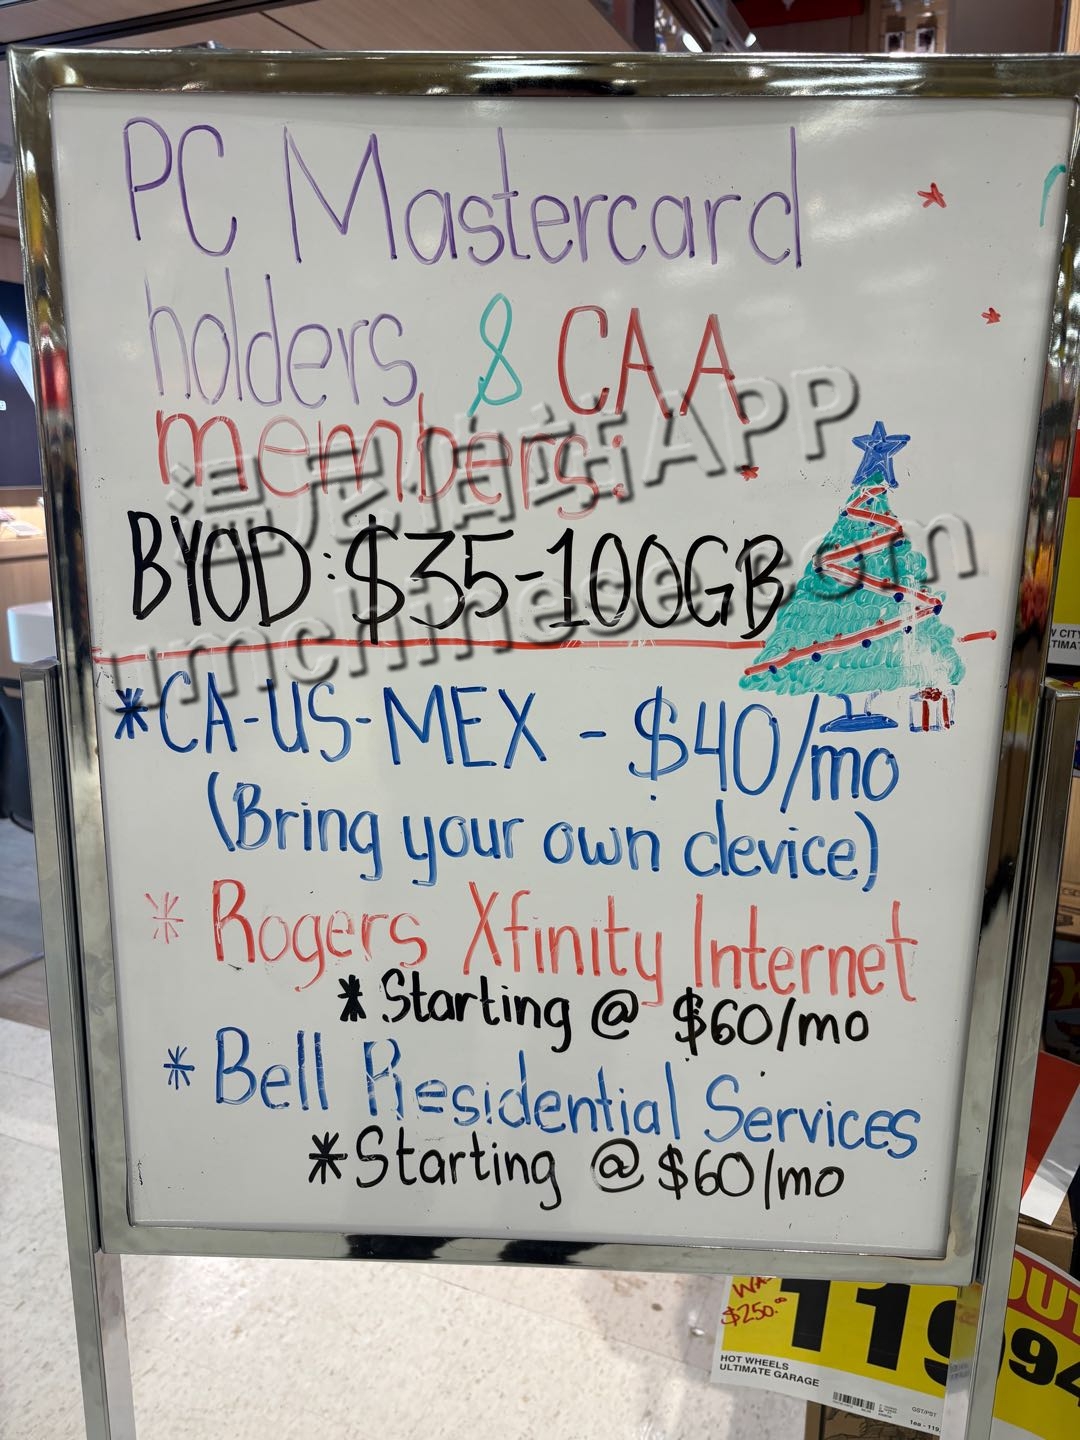 PC Mastercard
holders & CAA
members:
BYOD: $35-100GB
*CA-US-MEX - $40/mo
(Bring your own device)
* Rogers Xfinity Internet
* Starting @ $60/mo
* Bell Residential Services
* Starting @ $60/mo
温尼伯华人APP
umchinese.com
$250.00
119
HOT WHEELS
ULTIMATE GARAGE
GST/PST
OUT
94